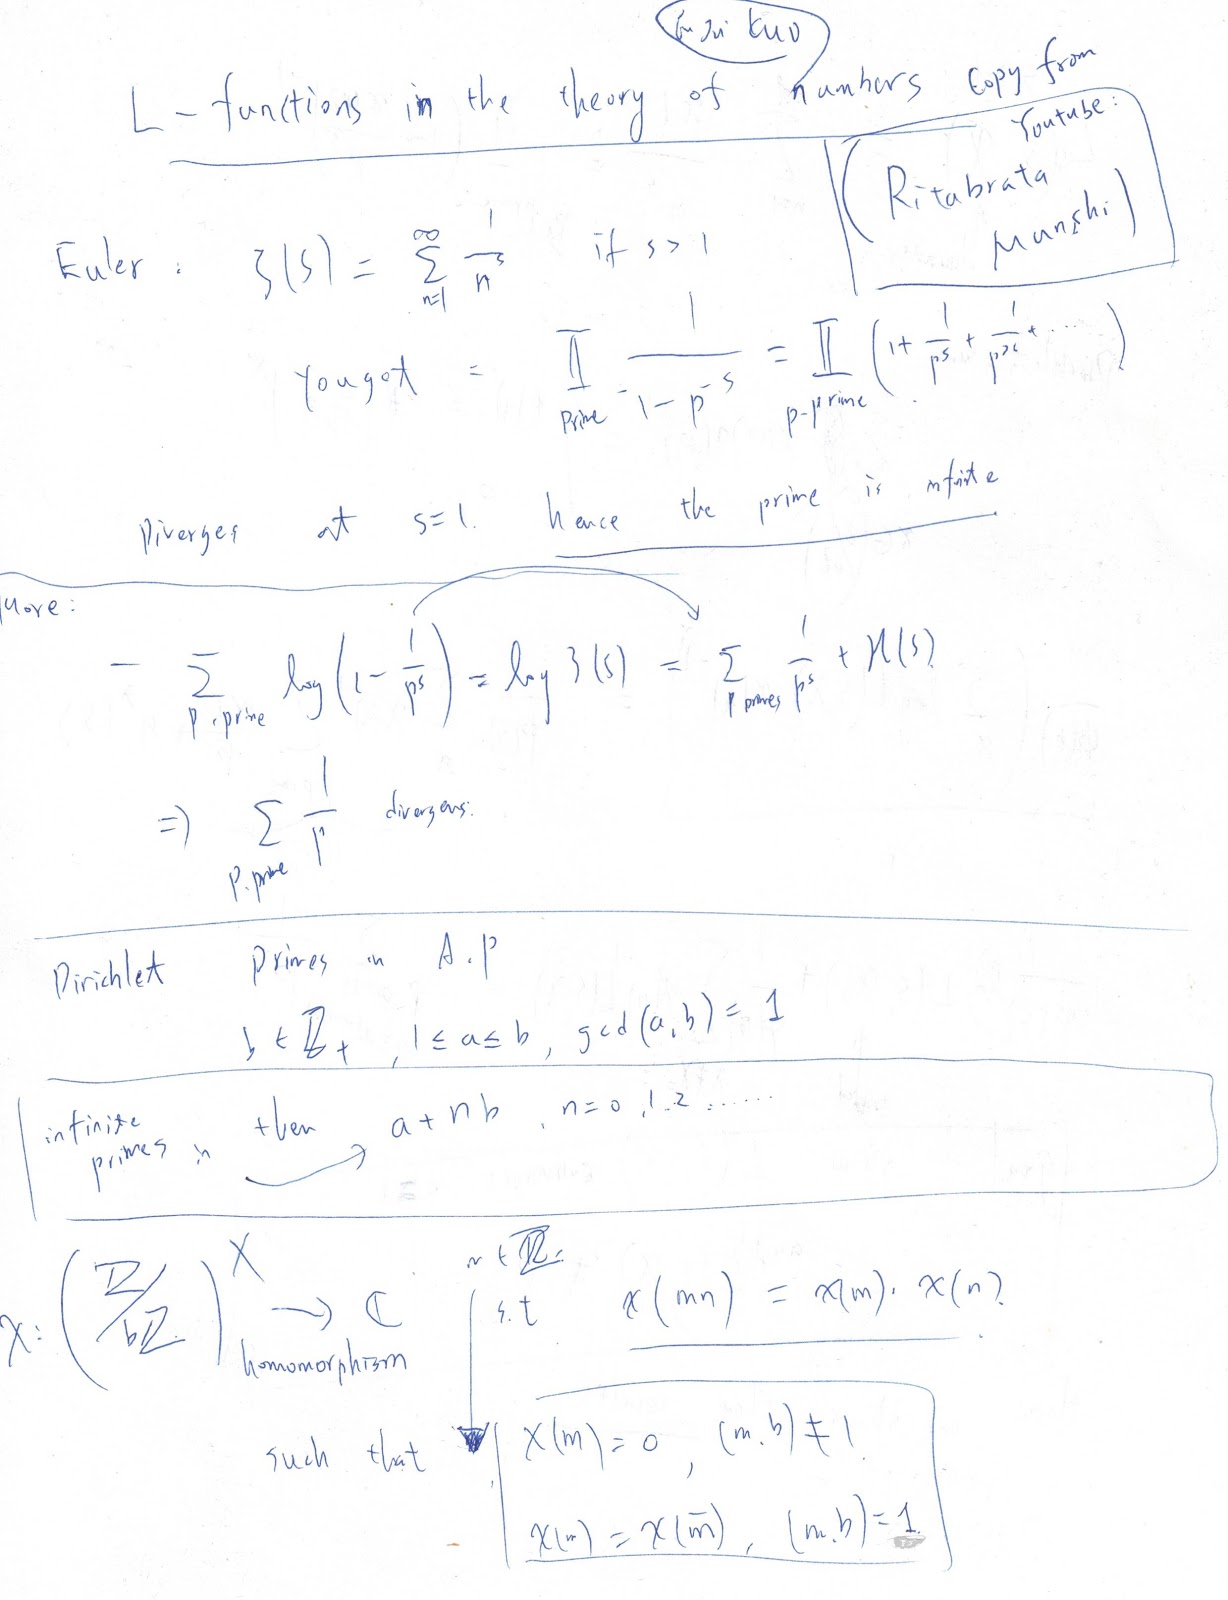 Kuo
L-functions in the theory of numbers copy from
Youtube:
(Ritabrata
Munshi)
Euler: ζ(s) = ∑_{n=1}^{∞} 1/n^s if s > 1
You got = ∏_{prime} 1/(1-p^{-s}) = ∏_{p-prime} (1 + 1/p^s + 1/p^{2s} + ....)
Diverges at s=1. hence the prime is infinite
More:
- ∑_{p.prime} log(1 - 1/p^s) = log ζ(s) = ∑_{p primes} 1/p^s + H(s).
⇒ ∑_{p.prime} 1/p divergens.
Dirichlet primes in A.P
b ∈ ℤ_+, 1 ≤ a ≤ b, gcd(a,b) = 1
infinite primes in then a + nb, n = 0, 1, 2 ......
χ: (ℤ/bℤ)^× → ℂ
homomorphism
n ∈ ℤ.
s.t χ(mn) = χ(m). χ(n).
such that χ(m) = 0, (m.b) ≠ 1.
χ(m) = χ(m̄), (m.b) = 1.